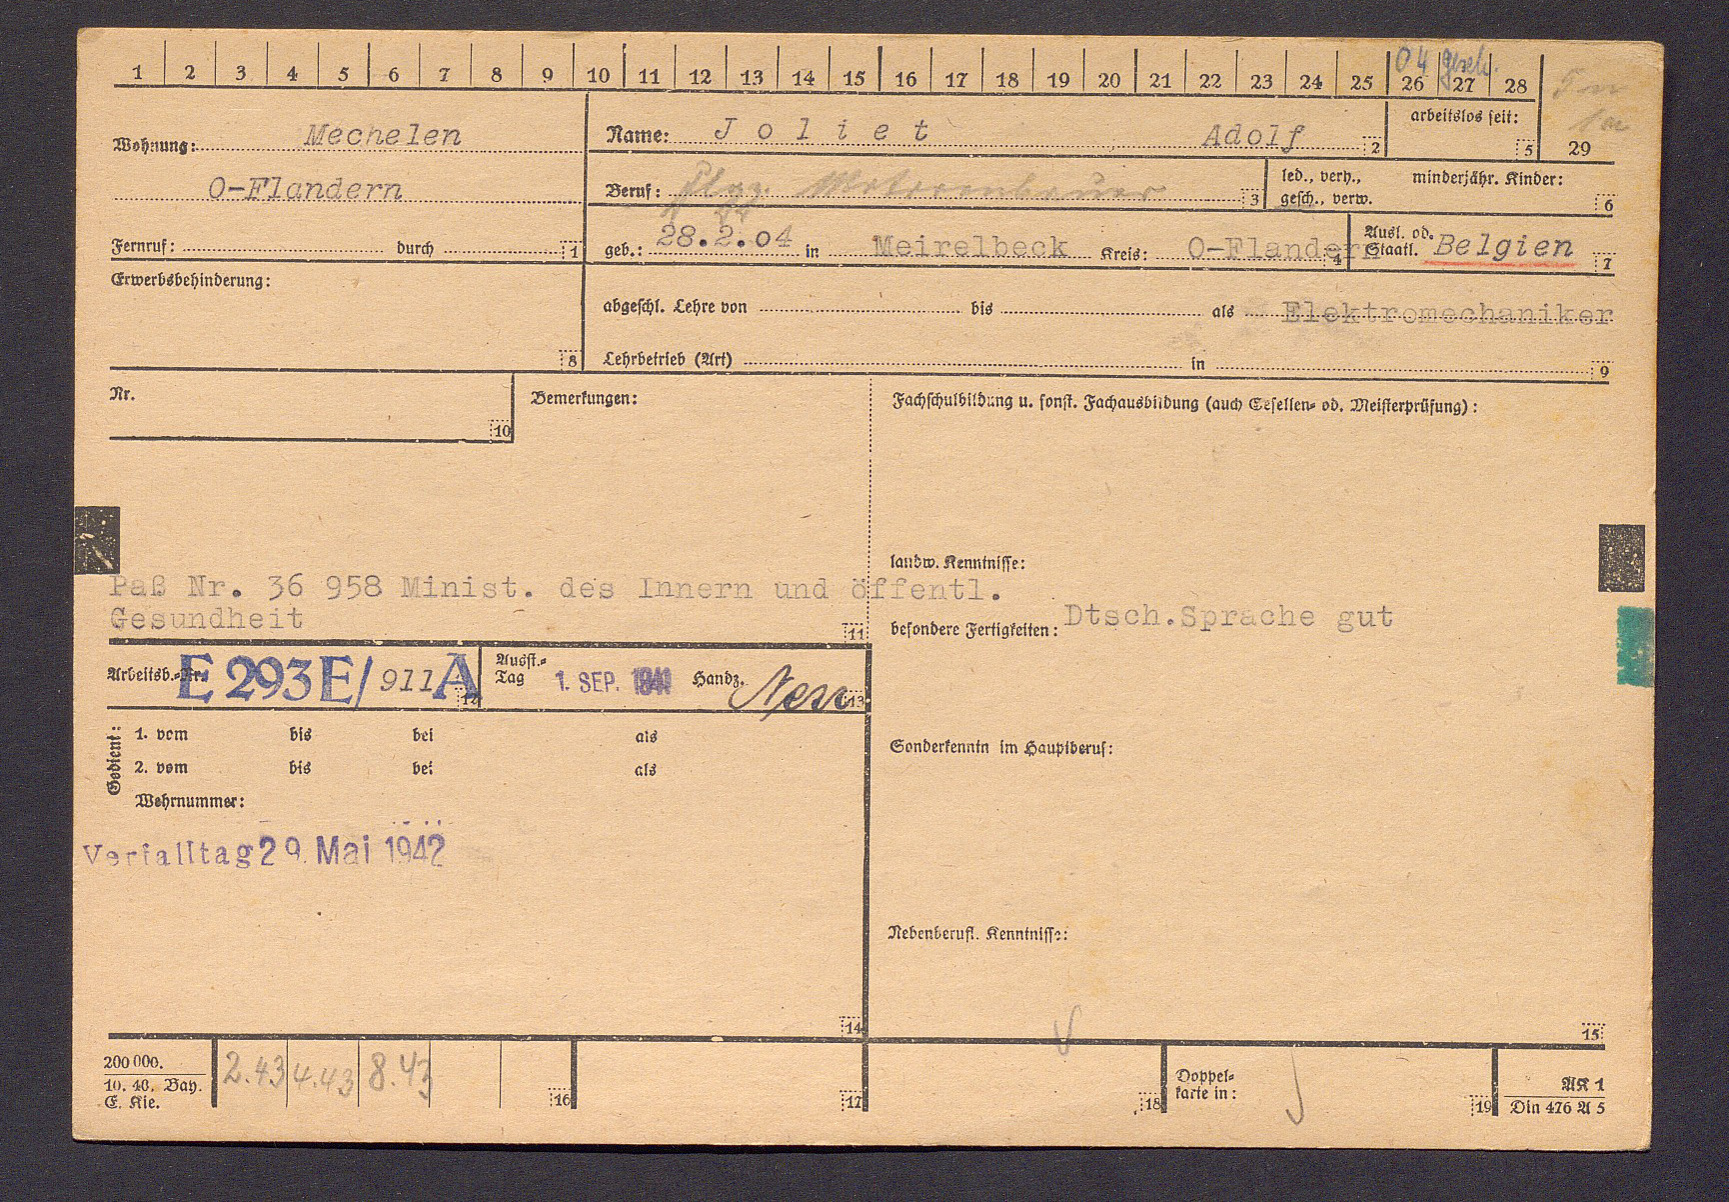 1 2 3 4 5 6 7 8 9 10 11 12 13 14 15 16 17 18 19 20 21 22 23 24 25 26 27 28
04 gesch.
29
Wohnung: Mechelen
O-Flandern
Fernruf: durch 1
Name: Joliet Adolf 2
arbeitslos seit: 5
Beruf: Flgz. Motorenbauer 3
led., verh., gesch., verw.
minderjähr. Kinder: 6
geb.: 28.2.04 in Meirelbeck Kreis: O-Flandern 4
Ausl. od. Staatl. Belgien 7
Erwerbsbehinderung: 8
abgeschl. Lehre von bis als Elektromechaniker
Lehrbetrieb (Art) in 9
Nr. 10
Bemerkungen:
Fachschulbildung u. sonst. Fachausbildung (auch Gesellen- od. Meisterprüfung):
landw. Kenntnisse:
Paß Nr. 36 958 Minist. des Innern und öffentl.
Gesundheit 11
besondere Fertigkeiten: Dtsch.Sprache gut
Arbeitsb.-Nr. E 293 E/911 A 12
Ausst.-Tag 1. SEP. 1941 Handz. 13
Gedient:
1. vom bis bei als
2. vom bis bei als
Wehrnummer:
Sonderkenntn im Hauptberuf:
Verfalltag 29. Mai 1942
Nebenberufl. Kenntnisse:
14
15
200 000.
10. 40. Bay.
E. Kie.
2.43 4.43 8.43
16
17
18
Doppel-
karte in:
19
AK 1
Din 476 A 5